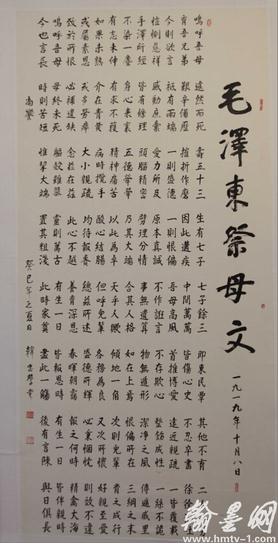 毛澤東祭母文
一九一九年十月八日
嗚呼吾母 遽然而死 壽五十三 生有七子 七子餘三 即東民覃 其他不育 二
育吾兄弟 艱辛備歷 摧折作磨 因此遘疾 中間萬萬 皆傷心史 不忍卒書 待
今則欲言 祇有兩端 一則盛德 一則恨偏 吾母高風 首推博愛 遠近親疏 一皆覆載
愷惻慈祥 感動庶彙 愛力所及 原本真誠 不作誑言 不存欺心 整飭成性 一絲不詭
手澤所經 皆有條理 頭腦精密 擘理分情 事無遺算 物無遁形 潔淨之風 傳遍戚里
不染一塵 身心表裏 五德犖犖 乃其大端 合其人格 如在上焉 恨偏所在 三綱之末
有志未伸 有求不獲 精神痛苦 以此為卓 天乎人歟 傾地一角 次則兒輩 育之成行
如果未熟 介在青黃 病時攬手 酸心結腸 但呼兒輩 各務為良 又次所懷 好親至愛
或屬素恩 或多勞瘁 大小親疏 均待報賚 總茲所述 盛德所輝 必秉悃忱 則效不違
致於所恨 必補遺缺 念茲在茲 此心不越 養育深恩 春暉朝靄 報之何時 精禽大海
嗚呼吾母 母終未死 軀殼雖隳 靈則萬古 有生一日 皆報恩時 有生一日 皆伴親時
今也言長 時則苦短 惟挈大端 置其粗淺 此時家奠 盡此一觴 後有言陳 與日俱長
尚饗
癸巳年之夏日 韓
翰墨网
www.hmtv-1.com